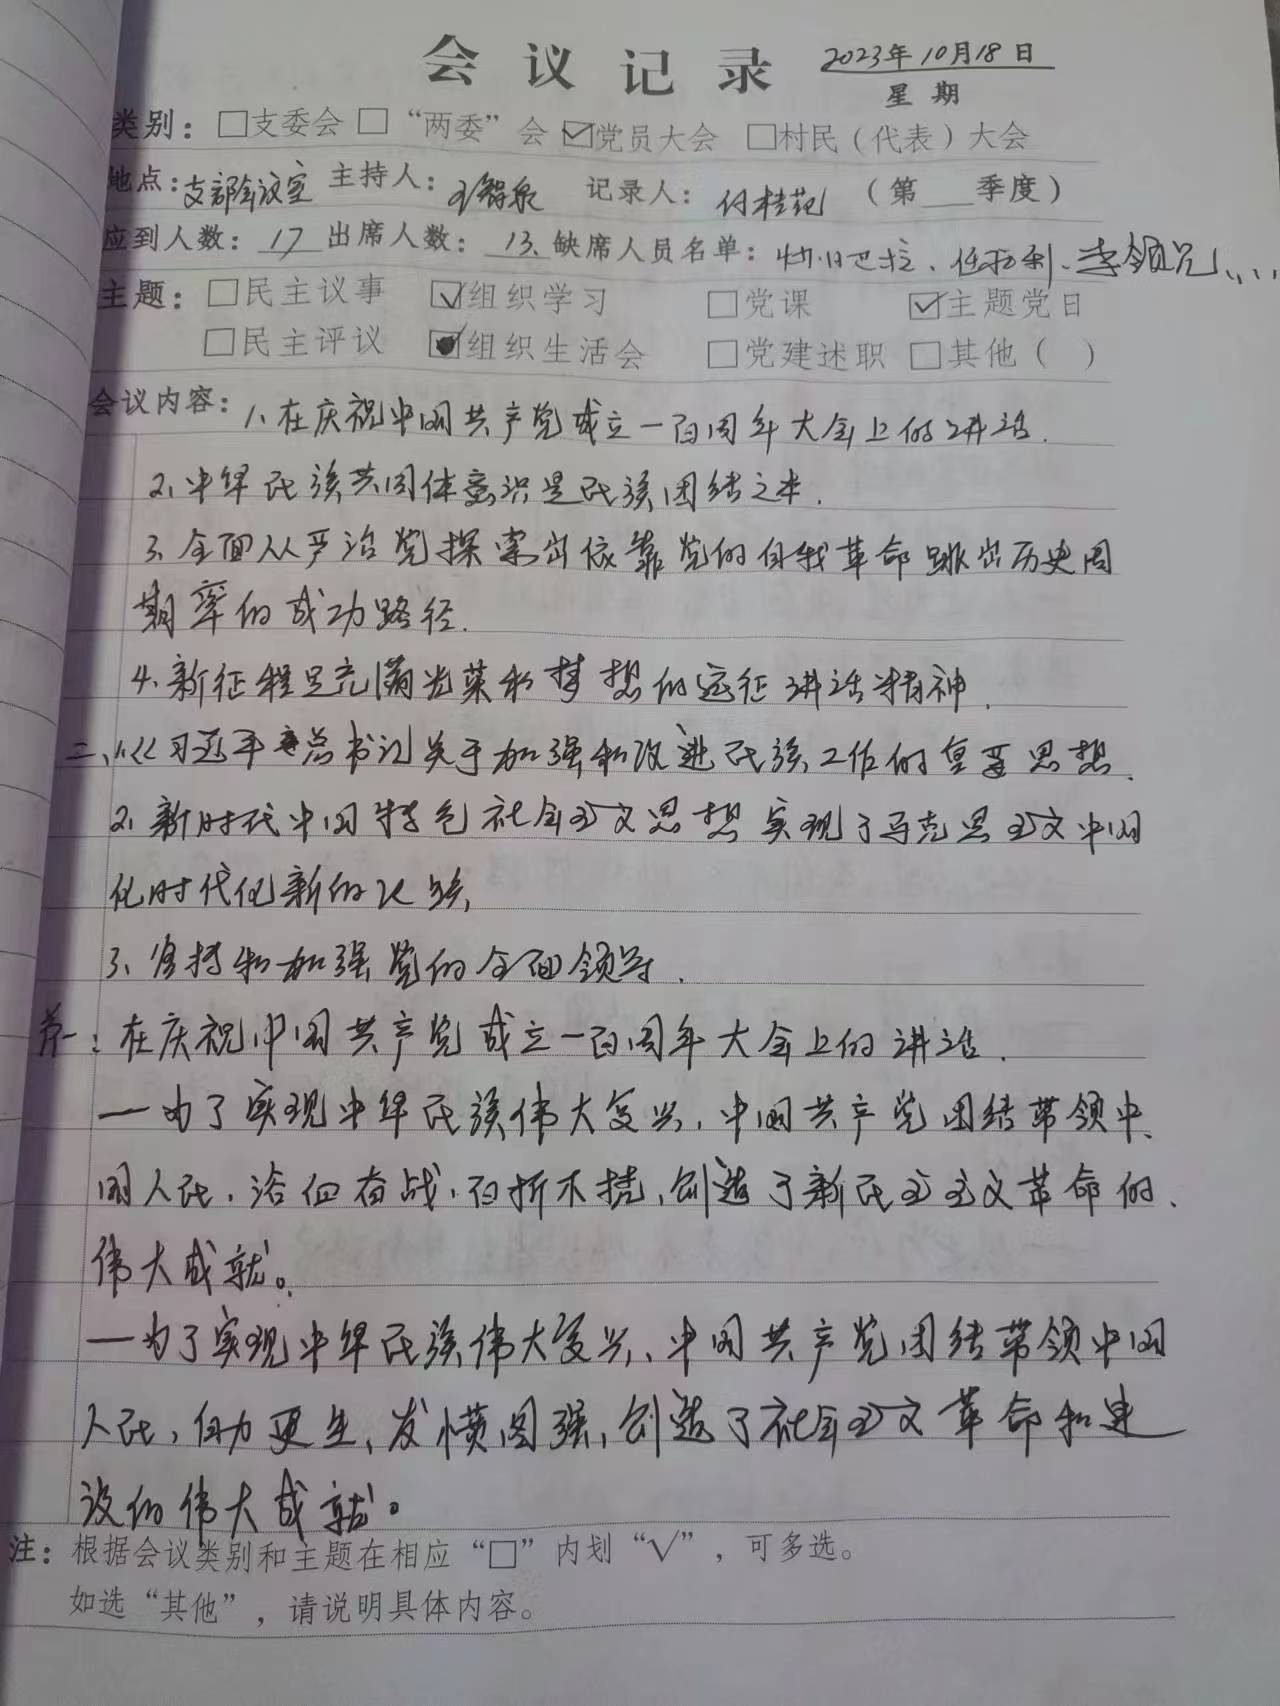 会议记录 2023年10月18日
星期
类别：□支委会 □“两委”会 ☑党员大会 □村民（代表）大会
地点：支部会议室 主持人： 记录人：付桂苑 （第 季度）
应到人数：17 出席人数：13、缺席人员名单：
主题：□民主议事 ☑组织学习 □党课 ☑主题党日
□民主评议 ☑组织生活会 □党建述职 □其他（ ）
会议内容：1、在庆祝中国共产党成立一百周年大会上的讲话.
2、中华民族共同体意识是民族团结之本.
3、全面从严治党探索出依靠党的自我革命跳出历史周
期率的成功路径.
4、新征程是充满光荣和梦想的远征讲话精神.
二、1.《习近平总书记关于加强和改进民族工作的重要思想.
2、新时代中国特色社会主义思想实现了马克思主义中国
化时代化新的飞跃,
3、坚持和加强党的全面领导.
第一：在庆祝中国共产党成立一百周年大会上的讲话.
一为了实现中华民族伟大复兴,中国共产党团结带领中
国人民,浴血奋战,百折不挠,创造了新民主主义革命的
伟大成就。
一为了实现中华民族伟大复兴、中国共产党团结带领中国
人民,自力更生、发愤图强,创造了社会主义革命和建
设的伟大成就。
注：根据会议类别和主题在相应“□”内划“√”，可多选。
如选“其他”，请说明具体内容。